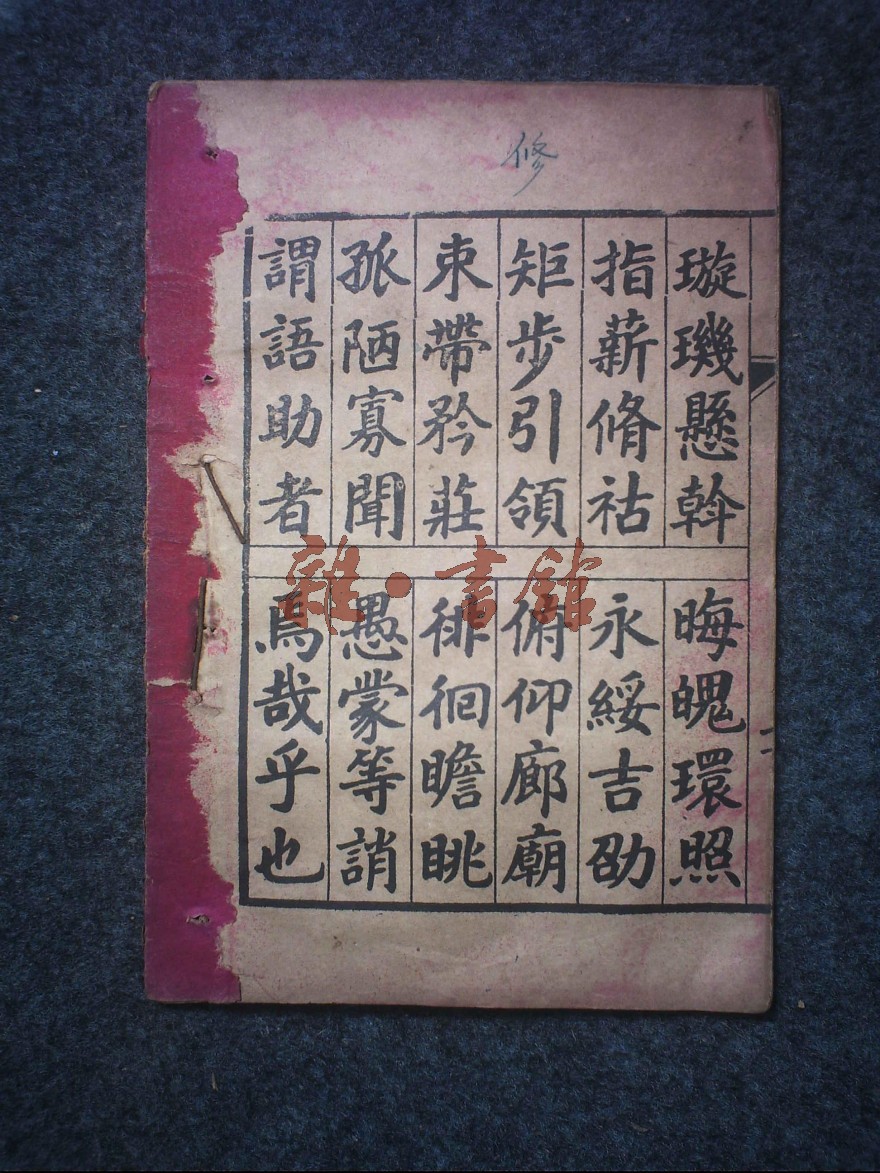 修
璇璣懸斡
晦魄環照
指薪脩祜
永綏吉劭
矩步引領
俯仰廊廟
束帶矜莊
徘徊瞻眺
孤陋寡聞
愚蒙等誚
謂語助者
焉哉乎也
雜·書館